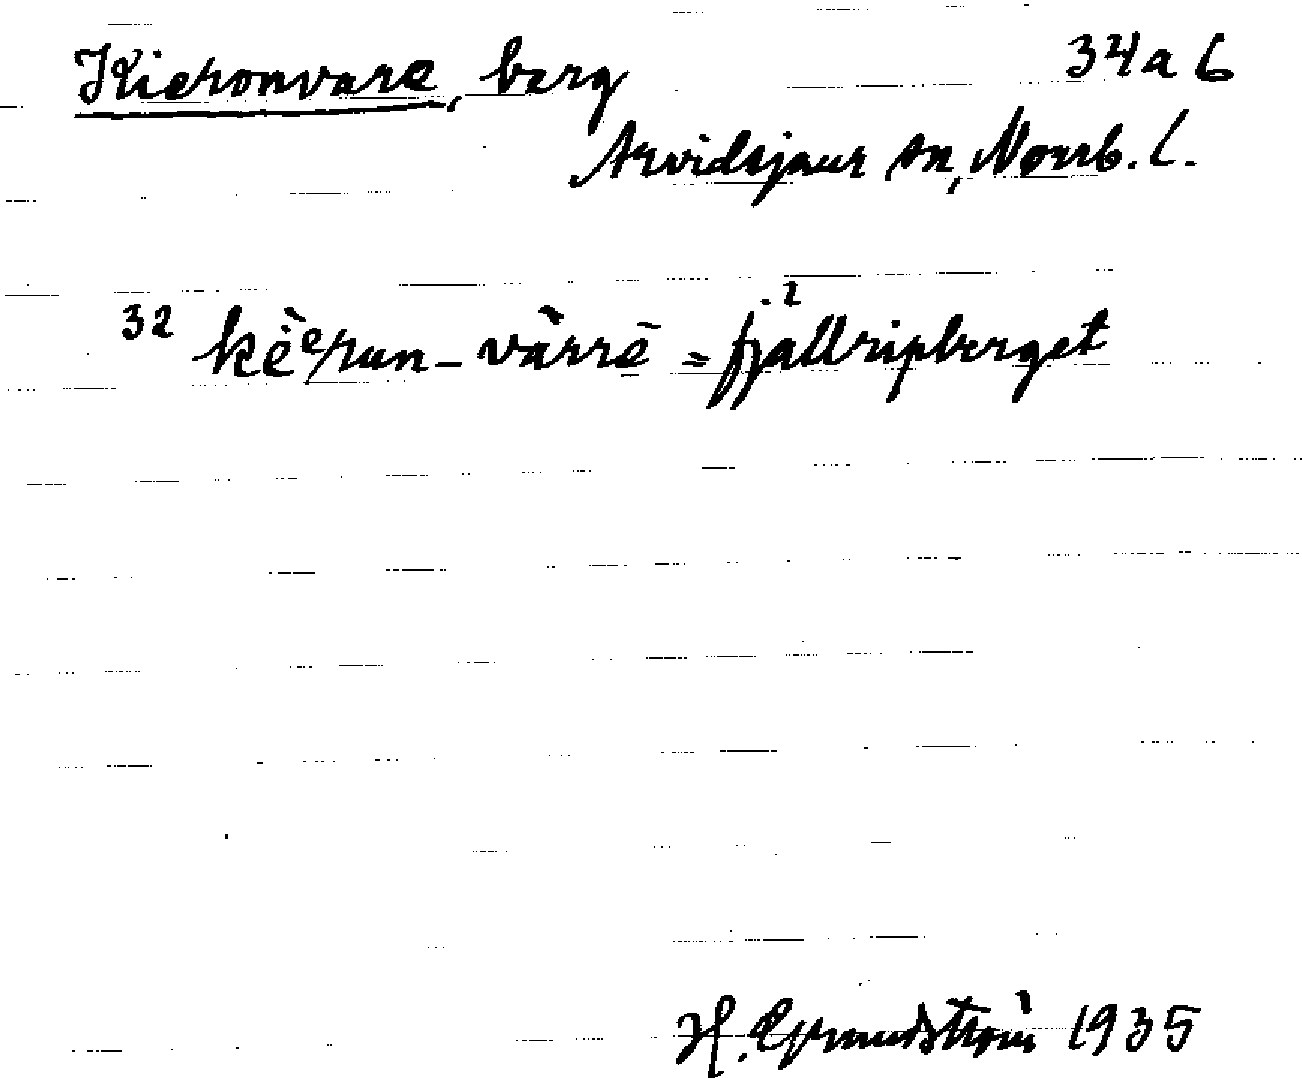 Kieronvare, berg 34a6
Arvidsjaur sn, Norrb. l.
32 kèeran-vàrrē = fjällripberget
H. Grundström 1935